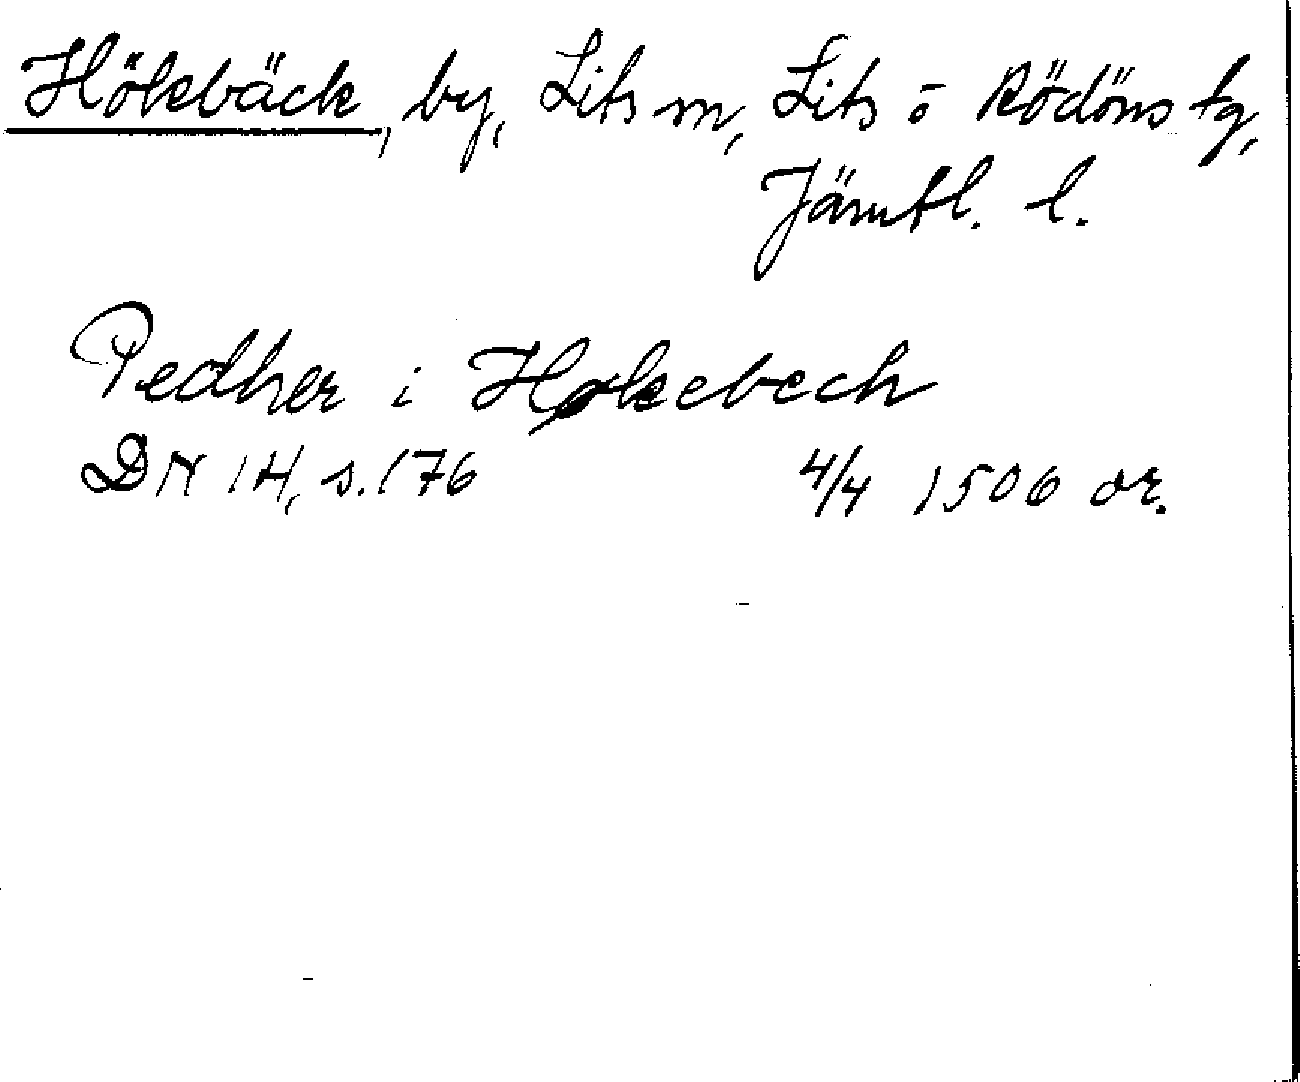 Hökbäck, by, Lits sn, Lits o Rödöns tg,
Jämtl. l.
Pedher i Høkebech
DN 14, s. 176 4/4 1506 or.